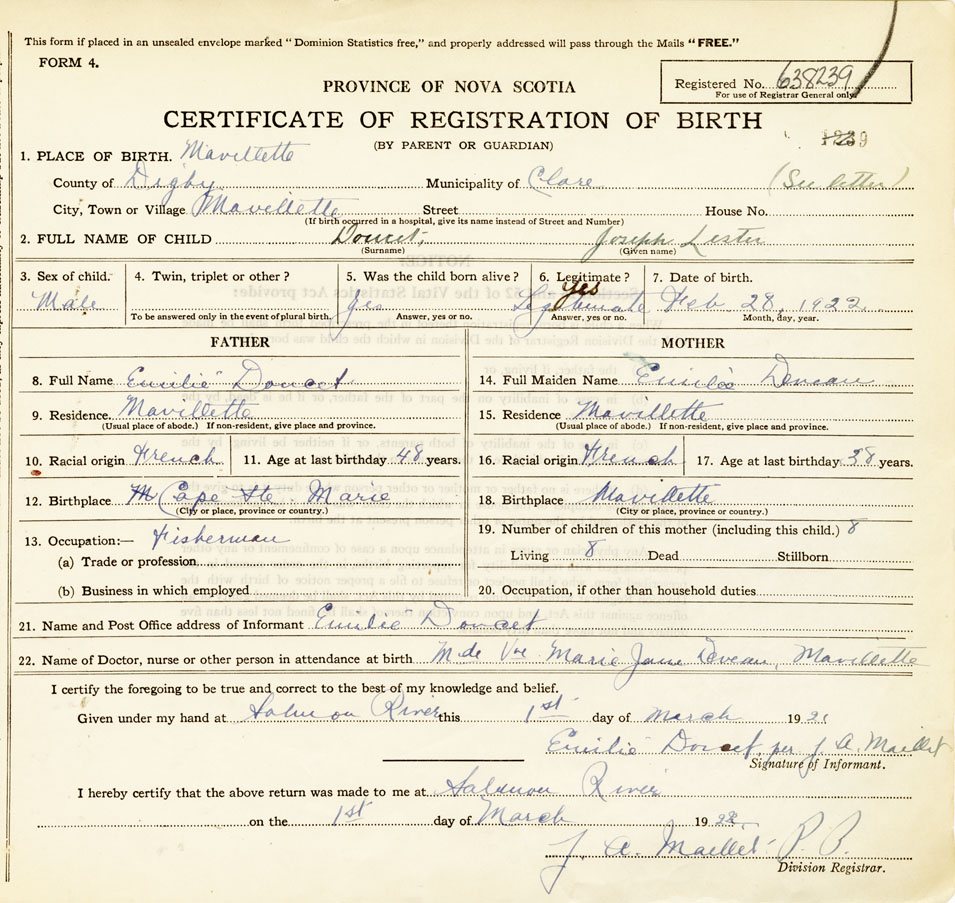 This form if placed in an unsealed envelope marked "Dominion Statistics free," and properly addressed will pass through the Mails "FREE."
FORM 4.
Registered No. 638239
For use of Registrar General only.
PROVINCE OF NOVA SCOTIA
CERTIFICATE OF REGISTRATION OF BIRTH
(BY PARENT OR GUARDIAN)
1. PLACE OF BIRTH. Mavillette
County of Digby Municipality of Clare (See letter)
City, Town or Village Mavillette Street House No.
(If birth occurred in a hospital, give its name instead of Street and Number)
2. FULL NAME OF CHILD Doucet, Joseph Lester
(Surname) (Given name)
3. Sex of child. 4. Twin, triplet or other? 5. Was the child born alive? 6. Legitimate? 7. Date of birth.
yes
Male Yes Legitimate Feb 28, 1922
To be answered only in the event of plural birth. Answer, yes or no. Answer, yes or no. Month, day, year.
FATHER
8. Full Name Emilie Doucet
9. Residence. Mavillette
(Usual place of abode.) If non-resident, give place and province.
10. Racial origin French 11. Age at last birthday 48 years.
12. Birthplace Cape Ste. Marie
(City or place, province or country.)
13. Occupation:— Fisherman
(a) Trade or profession
(b) Business in which employed
MOTHER
14. Full Maiden Name Emilie Deveau
15. Residence Mavillette
(Usual place of abode.) If non-resident, give place and province.
16. Racial origin French 17. Age at last birthday 38 years.
18. Birthplace Mavillette
(City or place, province or country.)
19. Number of children of this mother (including this child.) 8
Living 8 Dead Stillborn
20. Occupation, if other than household duties
21. Name and Post Office address of Informant Emilie Doucet
22. Name of Doctor, nurse or other person in attendance at birth Mde Vve Marie Jane Deveau, Mavillette
I certify the foregoing to be true and correct to the best of my knowledge and belief.
Given under my hand at Salmon River this 1st day of March 19
Emilie Doucet per J. A. Maillet
Signature of Informant.
I hereby certify that the above return was made to me at Salmon River
on the 1st day of March 1922
J. A. Maillet P. P.
Division Registrar.